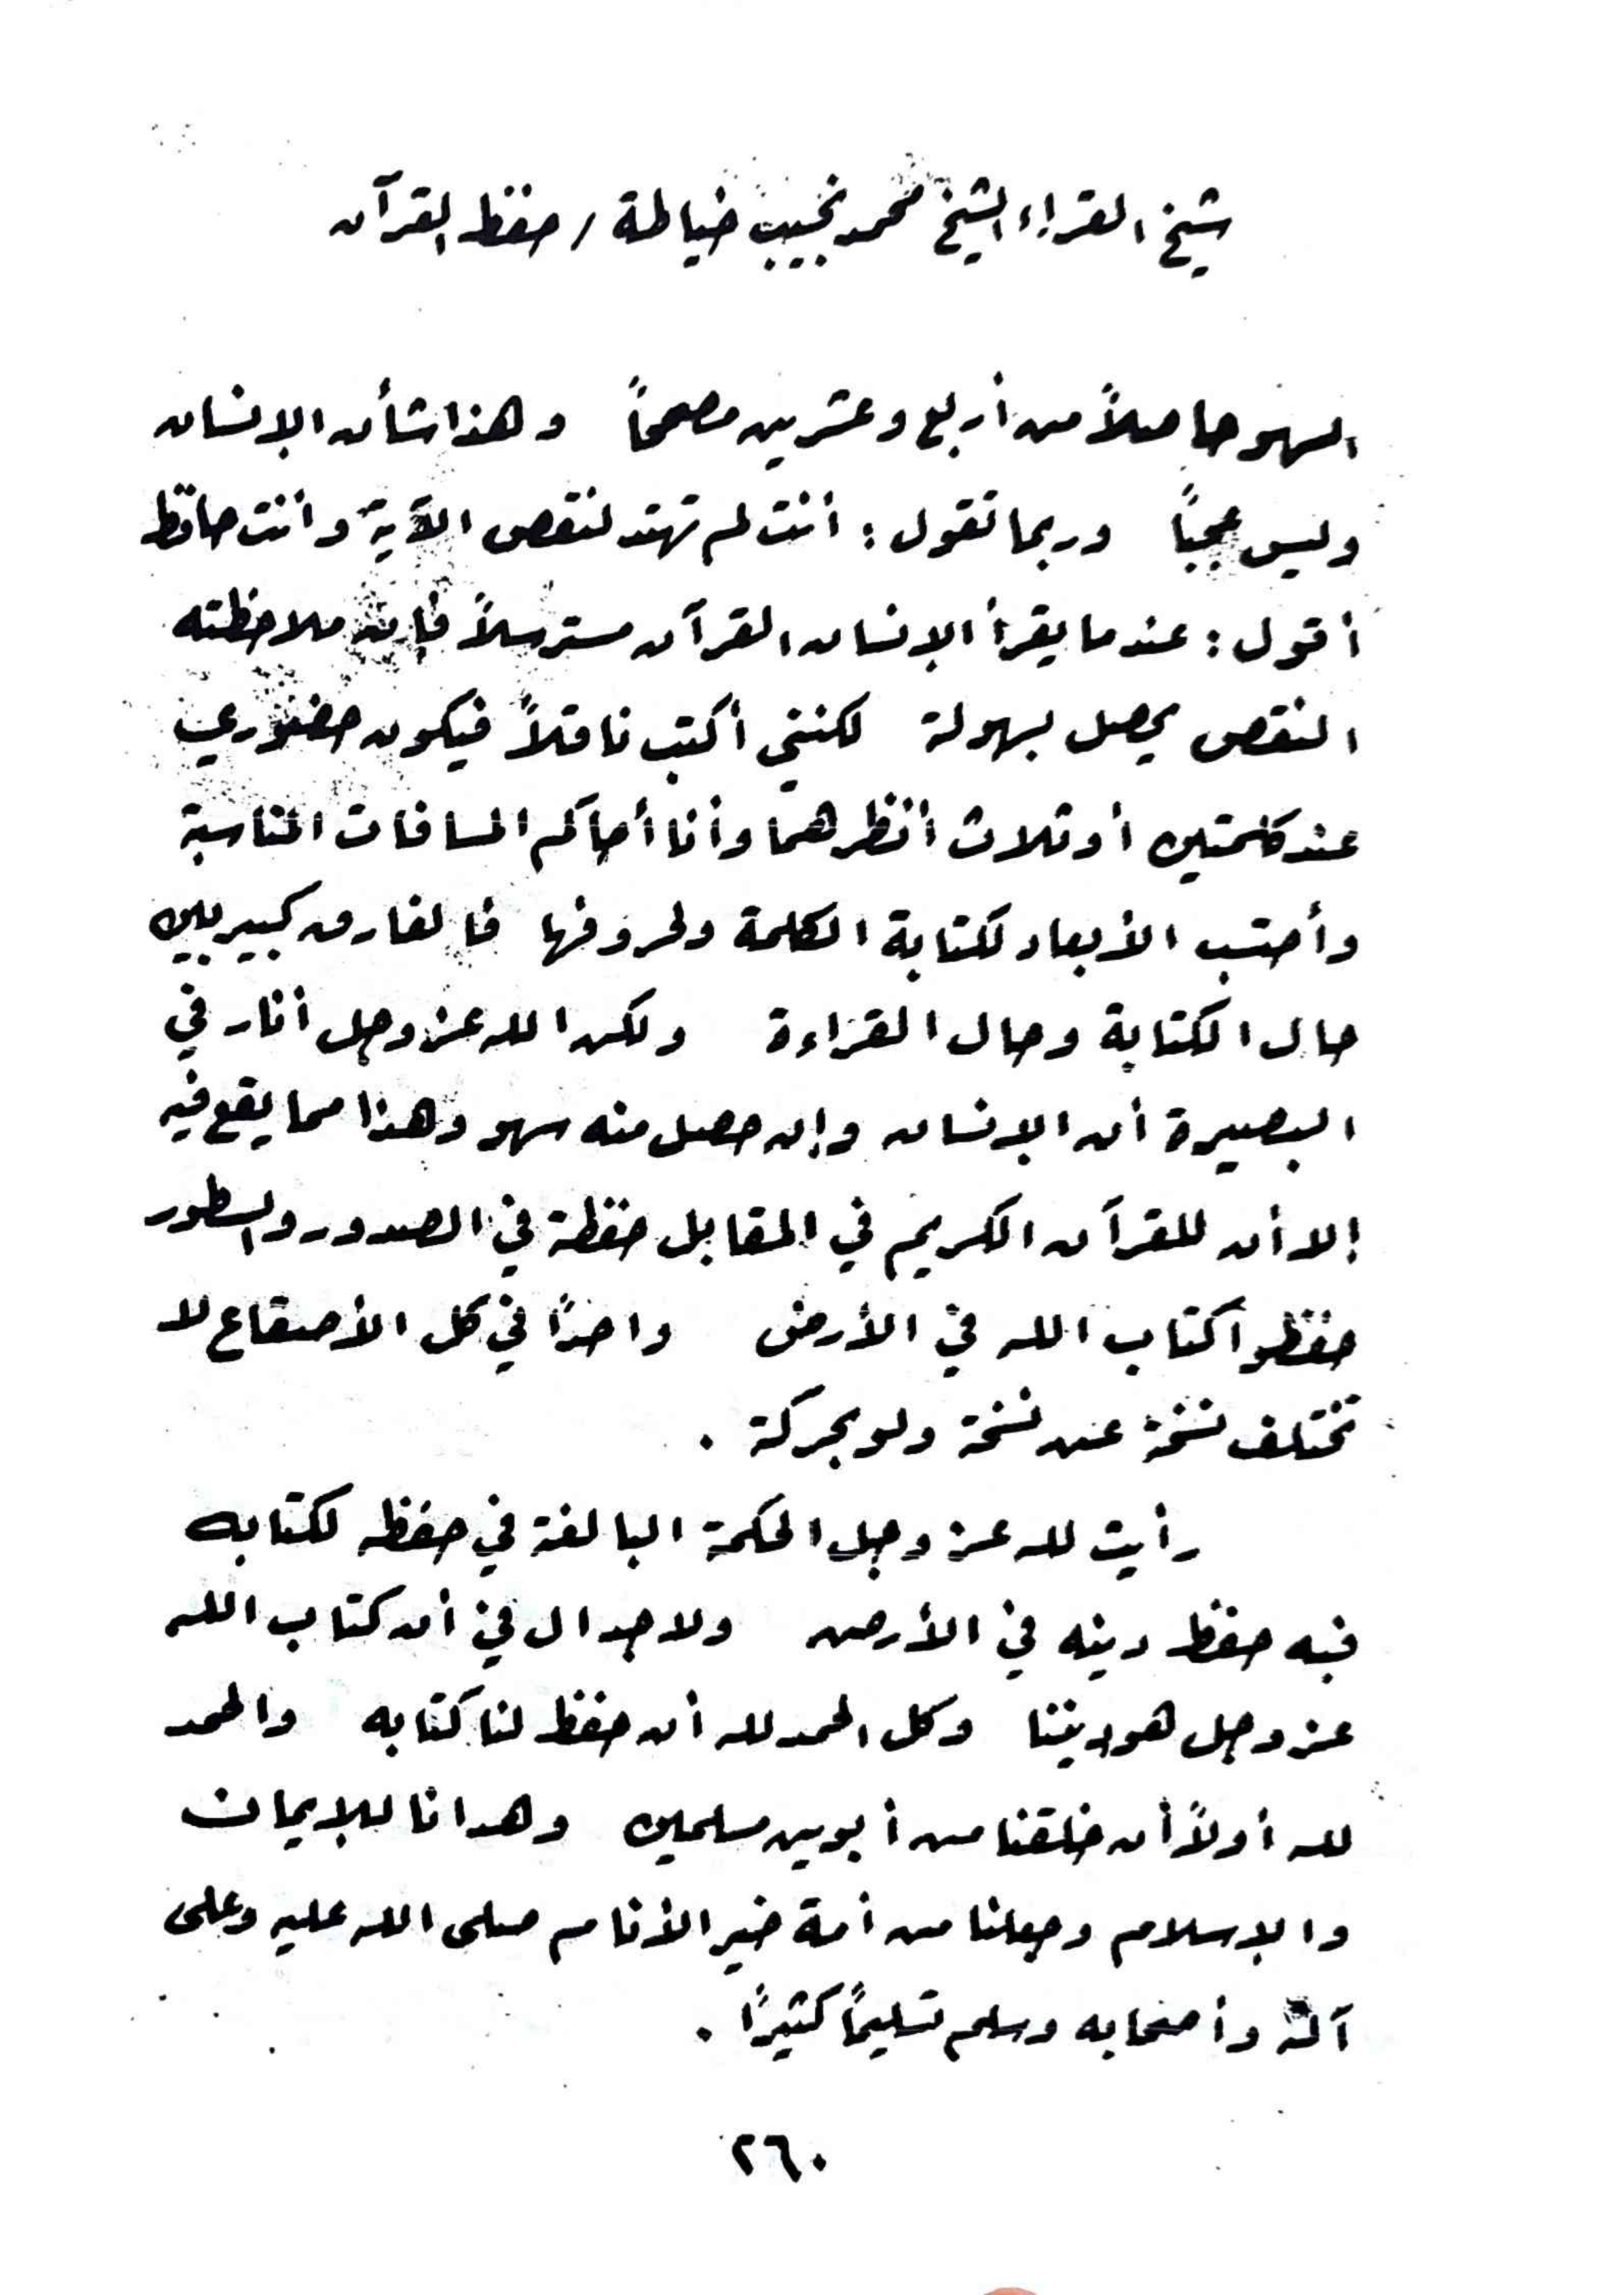 شيخ القراء الشيخ محمد نجيب خياطة / حفظ القرآن
السهو حاصلاً من أربع وعشرين مصححاً وهذا شأن الإنسان
وليس عجباً وربما تقول : أنت لم تهتد لنقص الآية وأنت حافظ
أقول : عندما يقرأ الإنسان القرآن مسترسلاً فإن ملاحظته
النقص يحصل بسهولة لكنني أكتب ناقلاً فيكون حضوري
عند كلمتين أو ثلاث أنظرهما وأنا أحاكم المسافات المناسبة
وأحتسب الأبعاد لكتابة الكلمة ولحروفها فالفارق كبير بين
حال الكتابة وحال القراءة ولكن الله عز وجل أنار في
البصيرة أن الإنسان وإن حصل منه سهو وهذا مما يقع فيه
إلا أن للقرآن الكريم في المقابل حفظة في الصدور والسطور
حفظوا كتاب الله في الأرض واحداً في كل الأصقاع لا
تختلف نسخة عن نسخة ولو بحركة .
رأيت لله عز وجل الحكمة البالغة في حفظه لكتابه
فبه حفظ دينه في الأرض ولا جدال في أن كتاب الله
عز وجل هو ديننا وكل الحمد لله أن حفظ لنا كتابه والحمد
لله أولاً أن خلقنا من أبوين مسلمين وهدانا للإيمان
والإسلام وجعلنا من أمة خير الأنام صلى الله عليه وعلى
آله وأصحابه وسلم تسليماً كثيراً .
٢٦٠